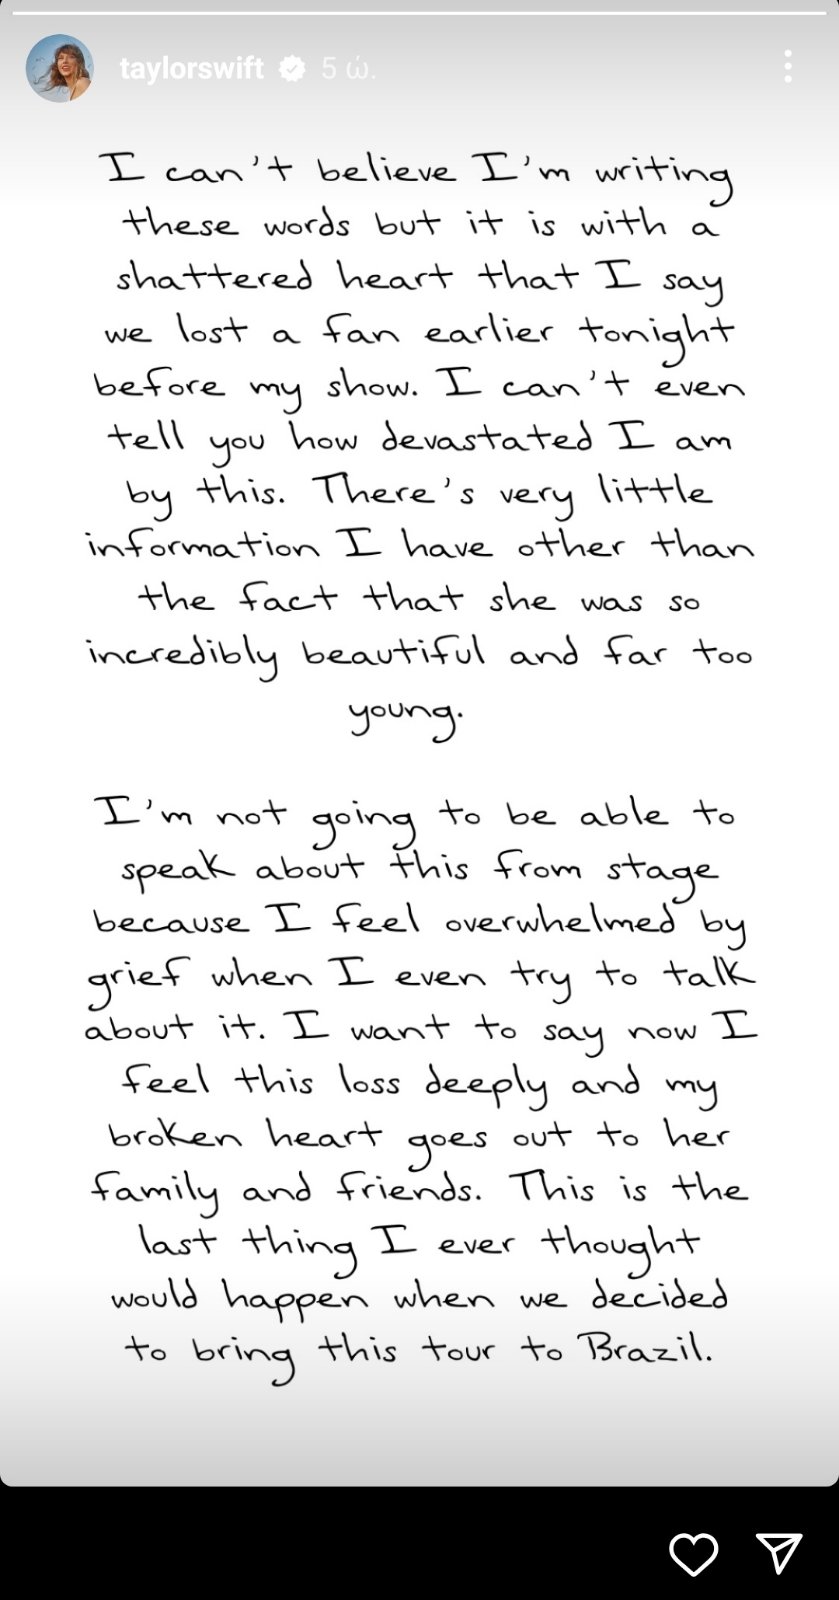 taylorswift 5 ώ.
I can't believe I'm writing
these words but it is with a
shattered heart that I say
we lost a fan earlier tonight
before my show. I can't even
tell you how devastated I am
by this. There's very little
information I have other than
the fact that she was so
incredibly beautiful and far too
young.
I'm not going to be able to
speak about this from stage
because I feel overwhelmed by
grief when I even try to talk
about it. I want to say now I
feel this loss deeply and my
broken heart goes out to her
family and friends. This is the
last thing I ever thought
would happen when we decided
to bring this tour to Brazil.